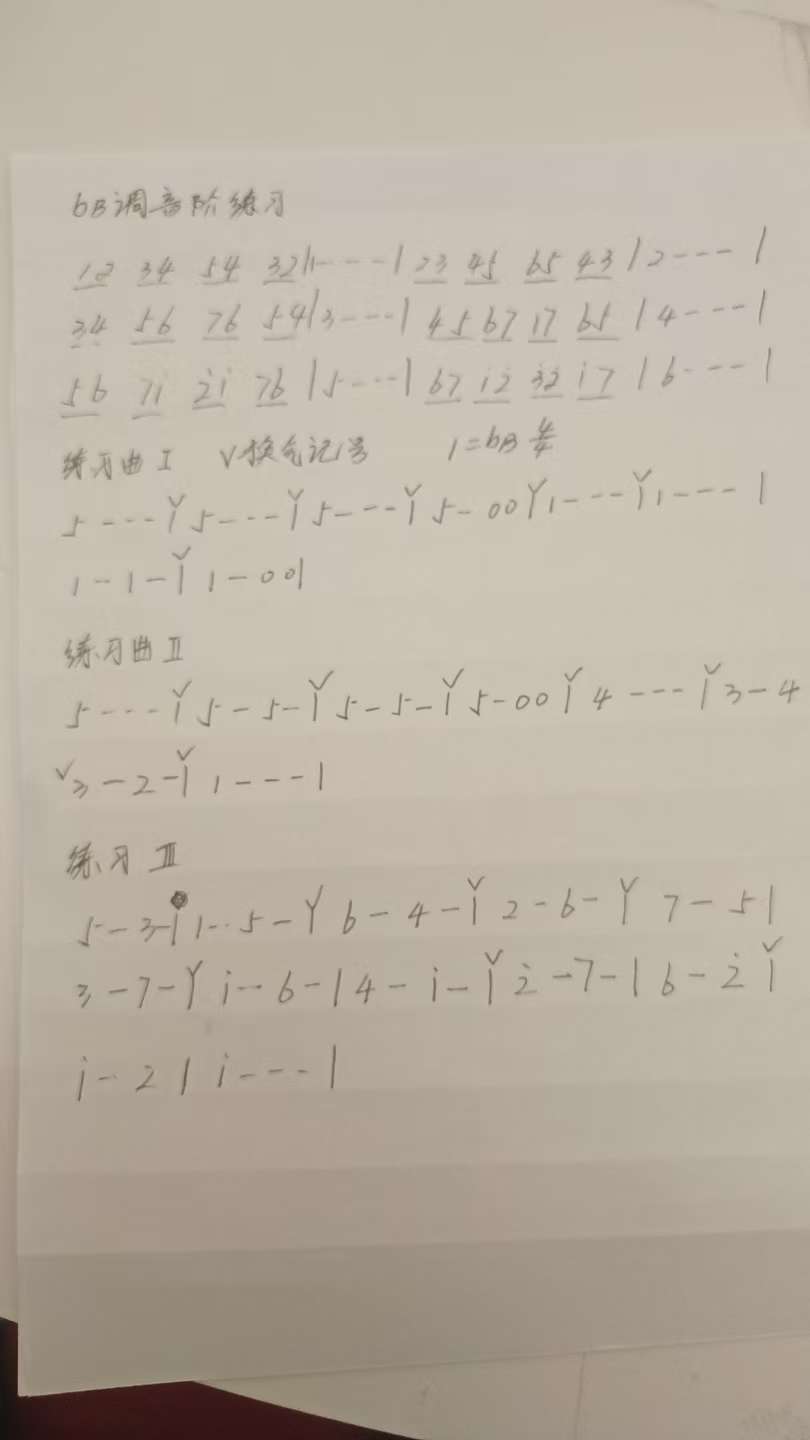 bB调音阶练习
12 34 54 32|1---|23 45 65 43|2---|
34 56 76 54|3---|45 67 17 65|4---|
56 7i 2̇i 76|5---|67 i2̇ 3̇2̇ i7|6---|
练习曲 I V换气记号 1=bB 4/4
5---|ⱽ5---|ⱽ5---|ⱽ5-00|ⱽ1---|ⱽ1---|
1-1-|ⱽ1-00|
练习曲 II
5---|ⱽ5-5-|ⱽ5-5-|ⱽ5-00|ⱽ4---|ⱽ3-4
ⱽ3-2-|ⱽ1---|
练习 III
5-3-|1--5-|ⱽ6-4-|ⱽ2-6-|ⱽ7-5|
3-7-|ⱽi-6-|4-i-|ⱽ2̇-7-|6-2̇|ⱽ
i-2|i---|